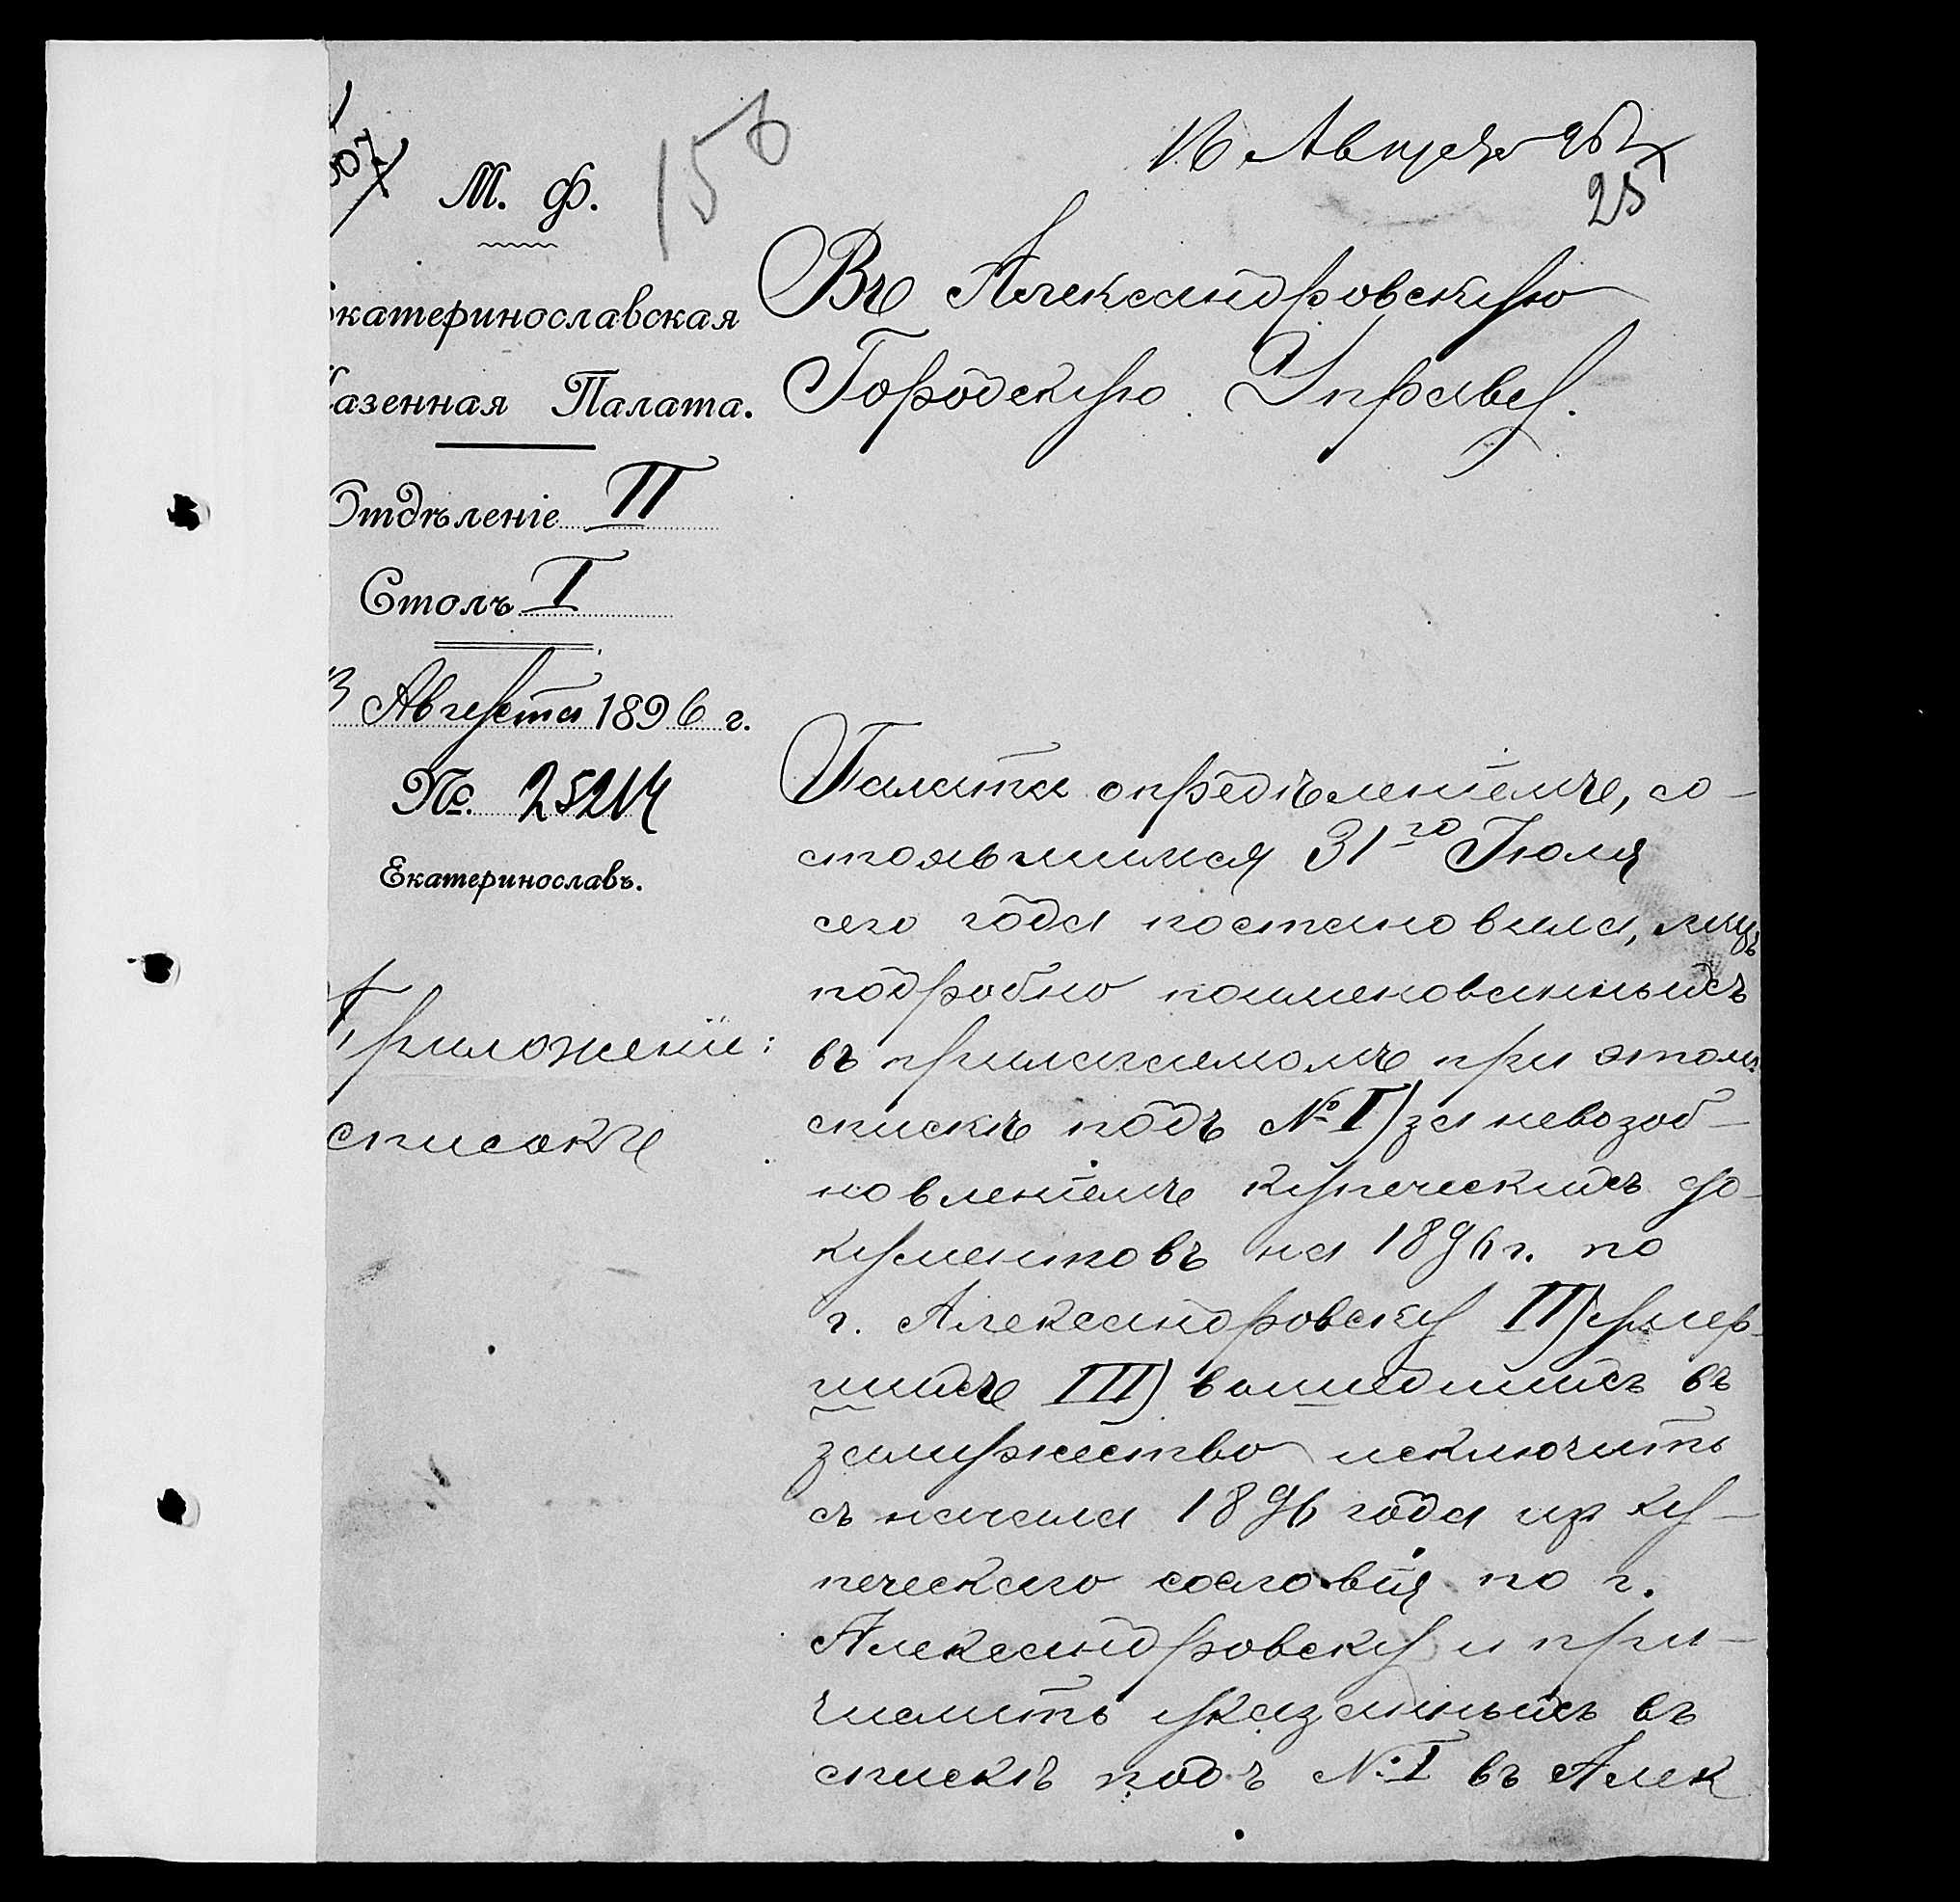 16 Августа 96 г
25
156
М. Ф.
Екатеринославская
Казенная Палата.
Отдѣленіе II
Столъ I
13 Августа 1896 г.
№ 25214
Екатеринославъ.
Приложеніе:
списокъ
Въ Александровскую
Городскую Управу.
Палата опредѣленіемъ, со-
стоявшимся 31го Іюля
сего года постановила, лицъ
подробно поименованныхъ
въ прилагаемомъ при этомъ
спискѣ подъ № I) за невозоб-
новленіемъ купеческихъ до-
кументовъ на 1896 г. по
г. Александровску II) умер-
шихъ III) вышедшихъ въ
замужество исключить
съ начала 1896 года изъ ку-
печескаго сословія по г.
Александровску и при-
числить указанныхъ въ
спискѣ подъ № I въ Алек